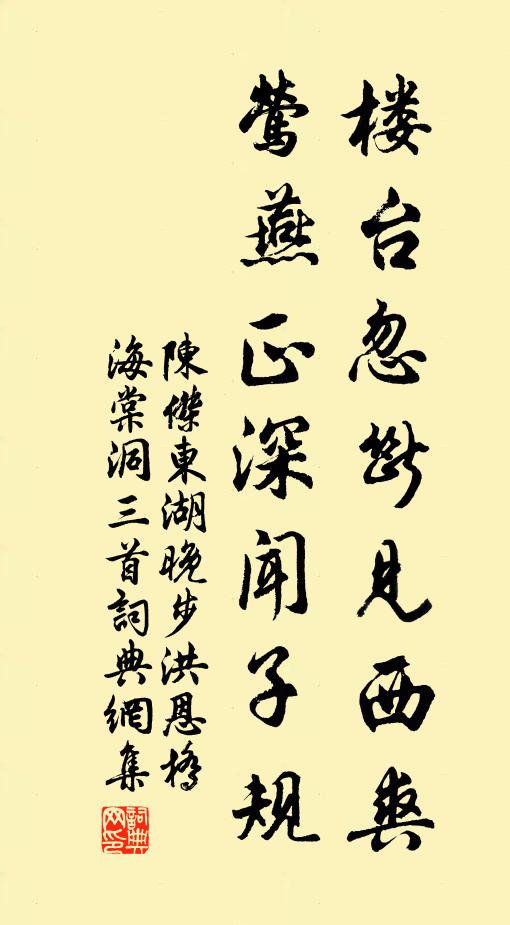 楼台忽断见西爽
莺燕正深闻子规
陳傑東湖晚步洪恩橋
海棠洞三首詞典網集
詞典網印